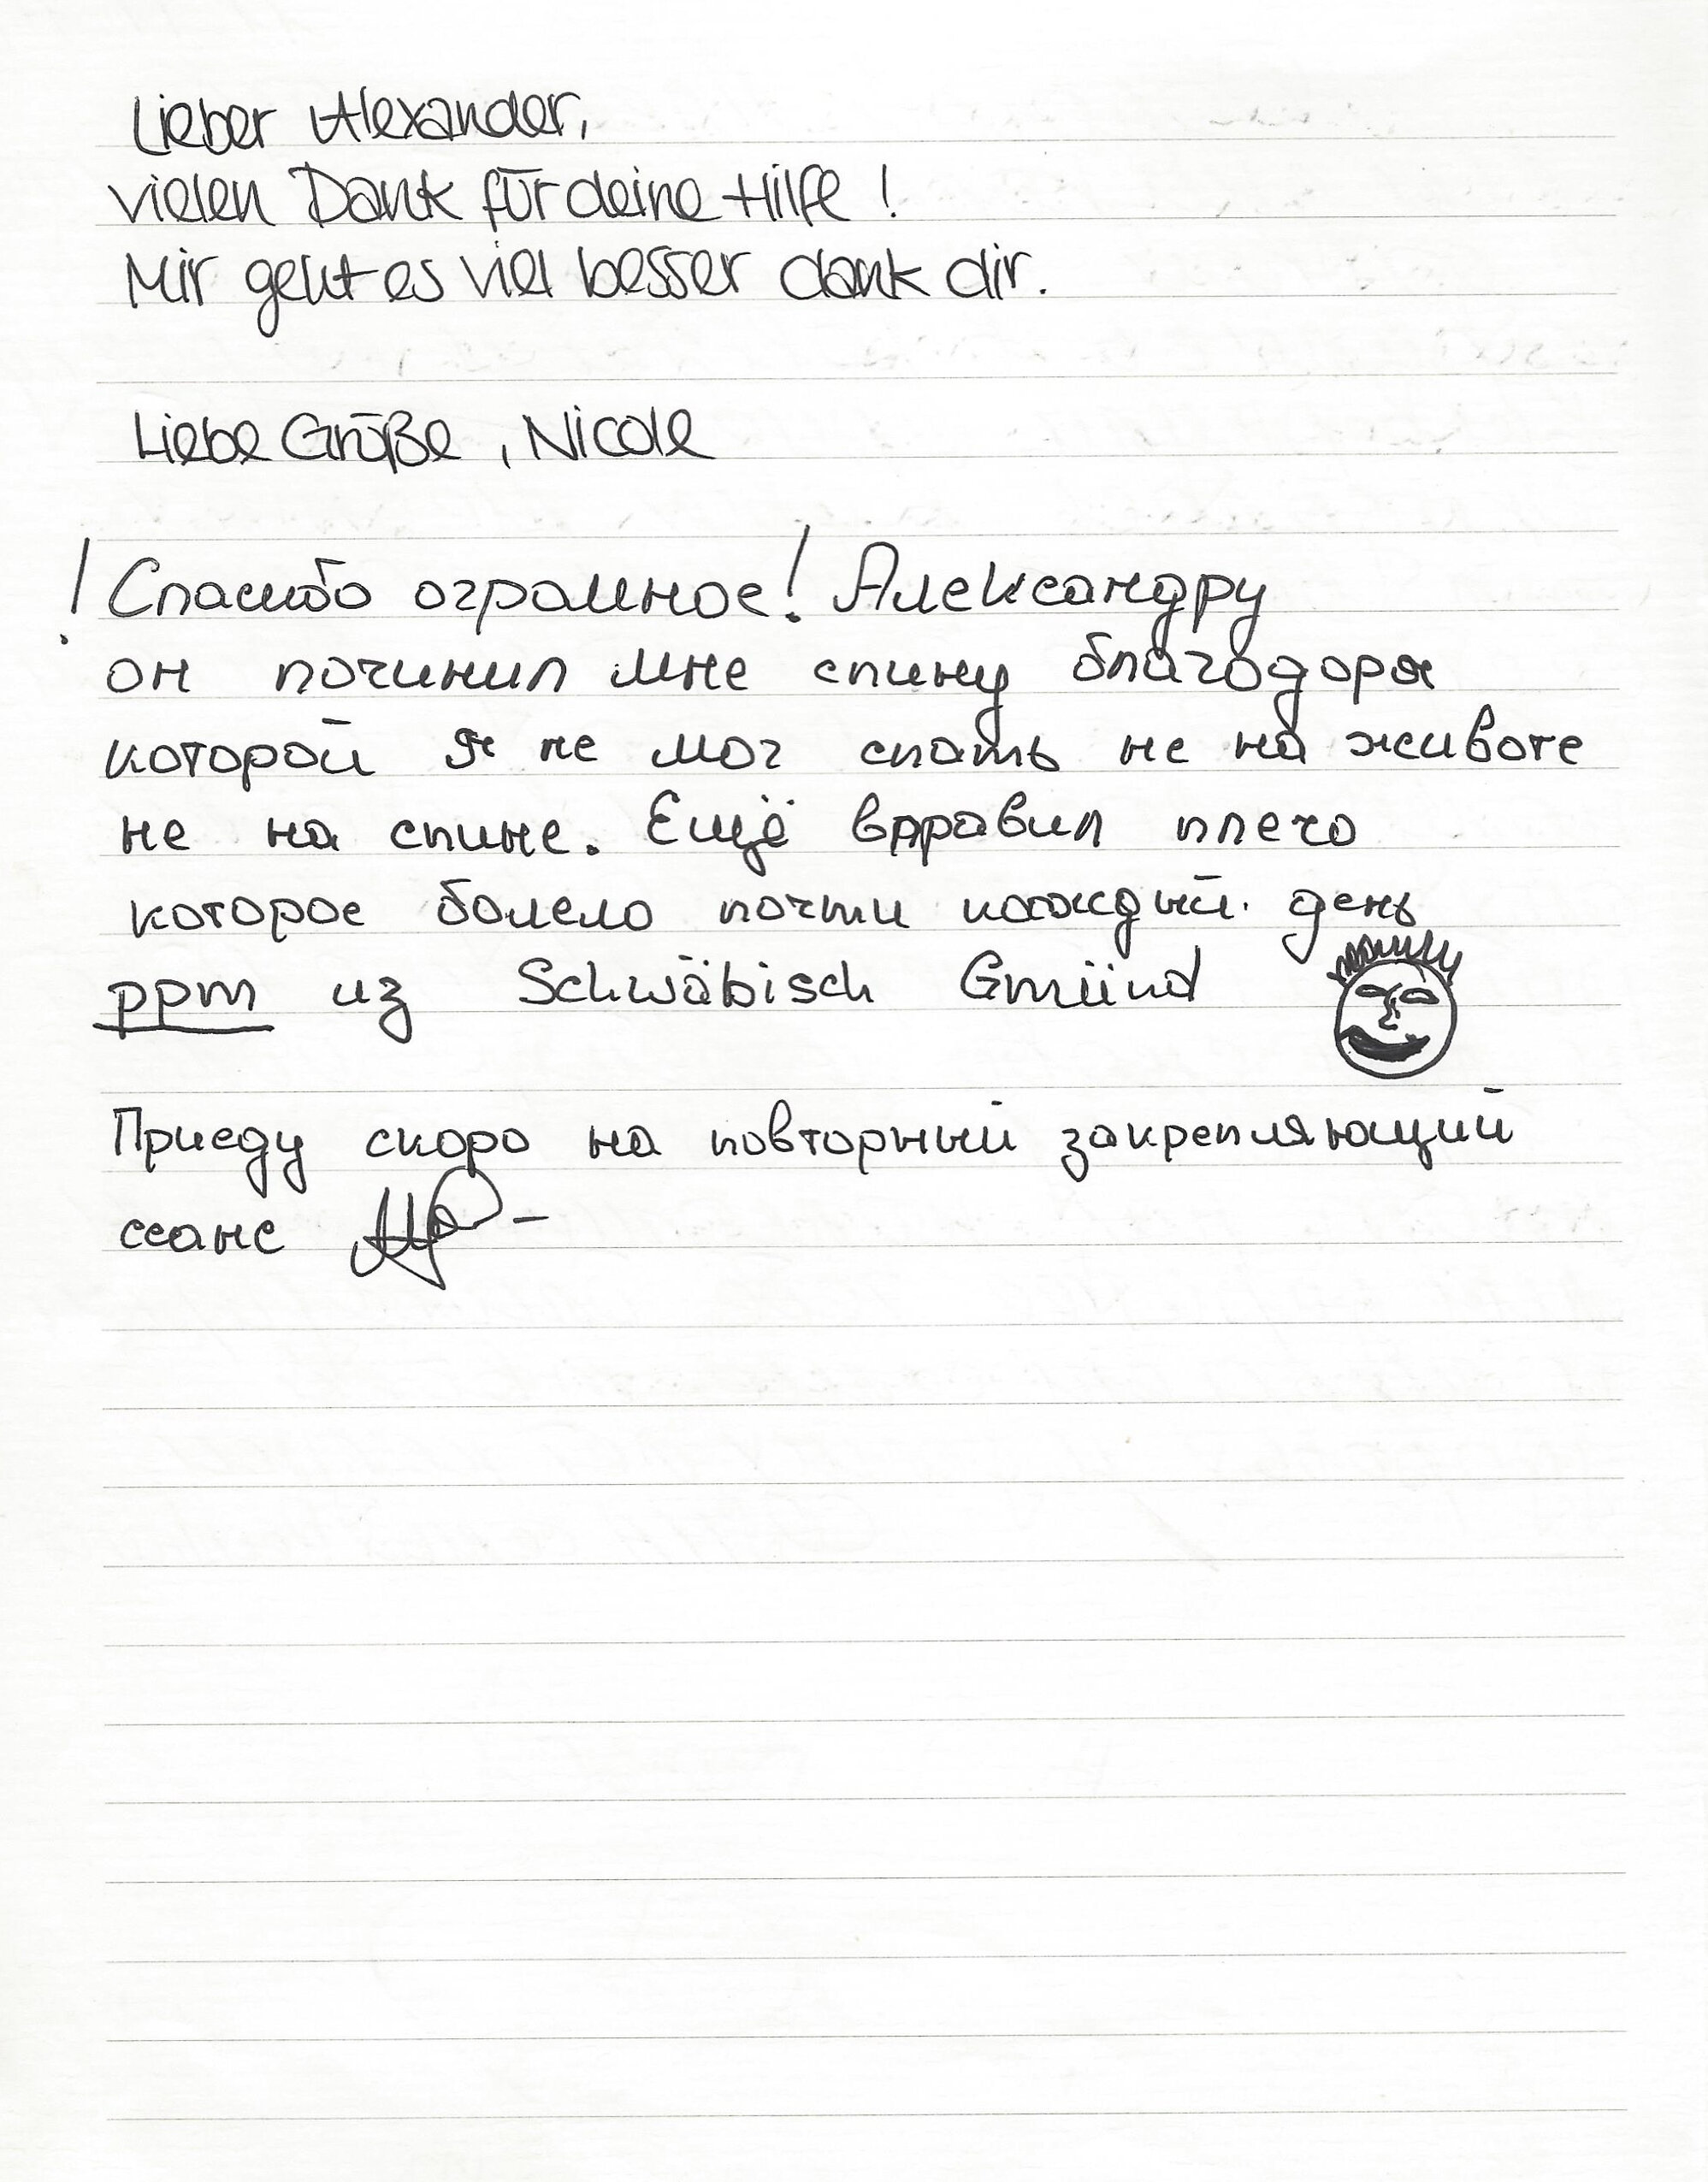 Lieber Alexander,
vielen Dank für deine Hilfe!
Mir geht es viel besser dank dir.
Liebe Grüße, Nicole
! Спасибо огромное! Александру
он починил мне спину благодоря
которой я не мог спать не на животе
не на спине. Ещё вправил плечо
которое болело почти каждый день
ppm из Schwäbisch Gmünd
Приеду скоро на повторный закрепляющий
сеанс